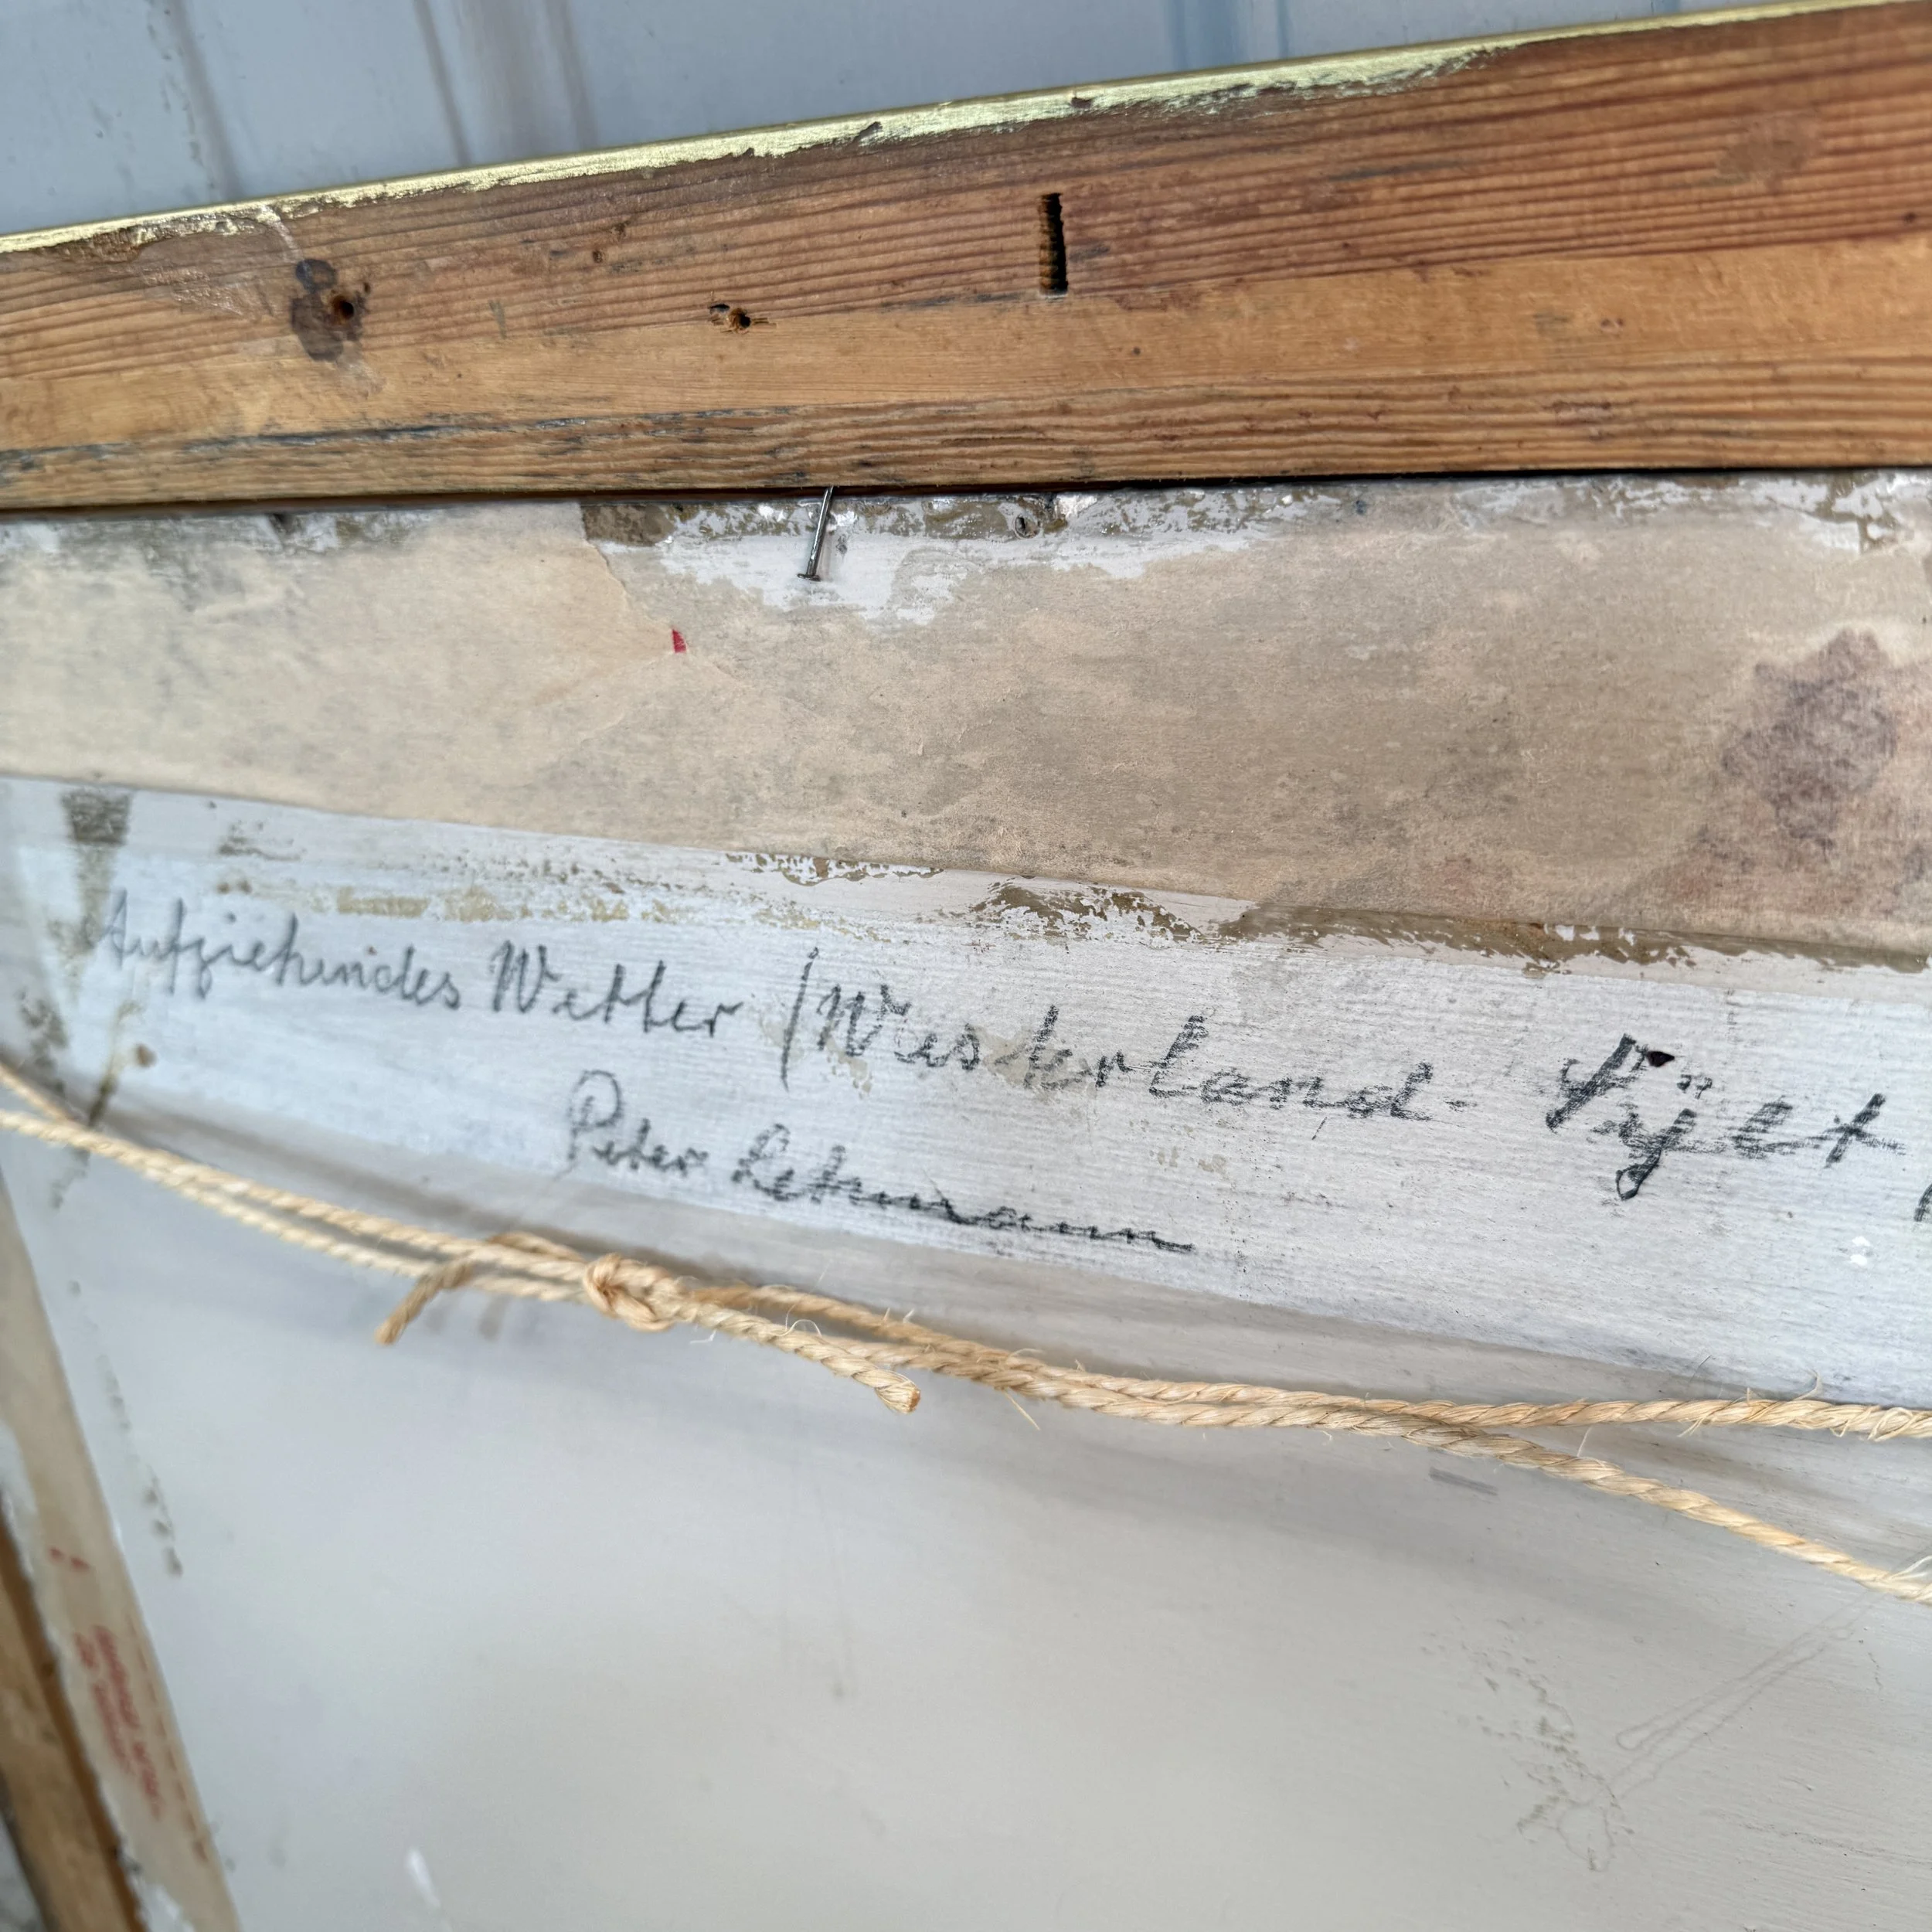 Aufziehendes Wetter / Westerland - Sÿlt
Peter Lehmann